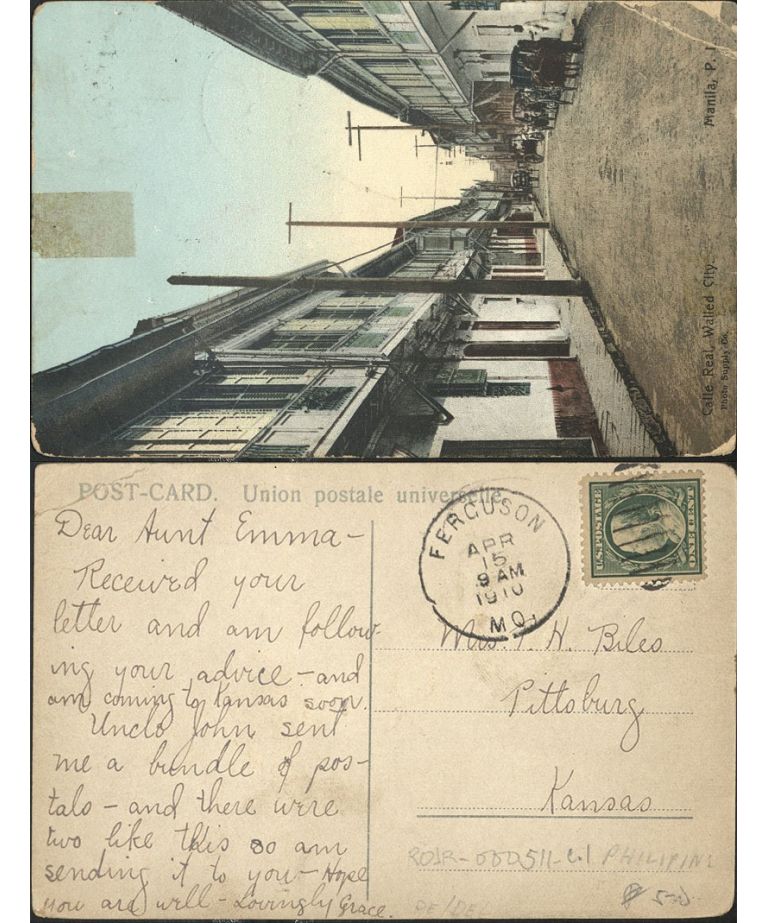 Manila, P. I.
Calle Real, Walled City.
Photo Supply Co.
POST-CARD. Union postale universelle.
Dear Aunt Emma—
Received your
letter and am follow-
ing your advice—and
am coming to Kansas soon.
Uncle John sent
me a bundle of pos-
tals — and there were
two like this so am
sending it to you—Hope
you are well—Lovingly Grace.
FERGUSON
APR
15
9 AM
1910
MO.
U.S. POSTAGE
ONE CENT
Mrs. H. Biles
Pittsburg
Kansas
PHILIPINE